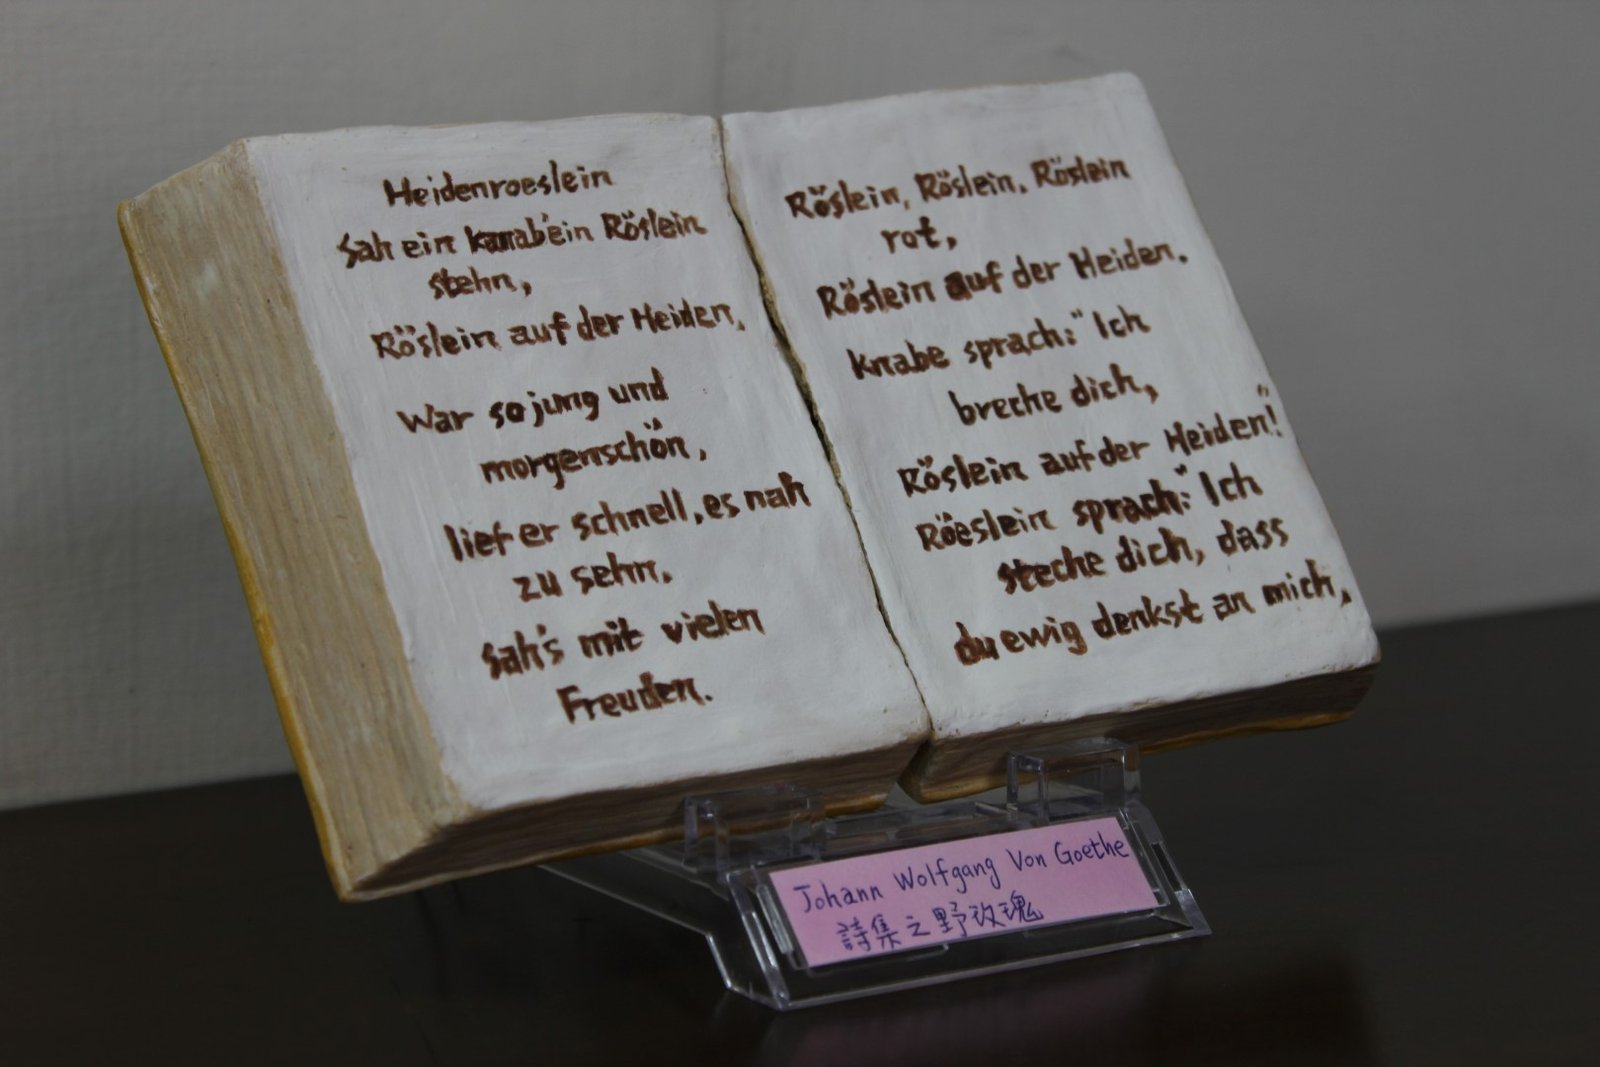 Heidenroeslein
Sah ein knab'ein Röslein
stehn,
Röslein auf der Heiden,
War so jung und
morgenschön,
lief er schnell, es nah
zu sehn,
Sah's mit vielen
Freuden.
Röslein, Röslein, Röslein
rot,
Röslein auf der Heiden.
Knabe sprach: "Ich
breche dich,
Röslein auf der Heiden"!
Röeslein sprach: "Ich
steche dich, dass
du ewig denkst an mich,
Johann Wolfgang Von Goethe
詩集之野玫瑰